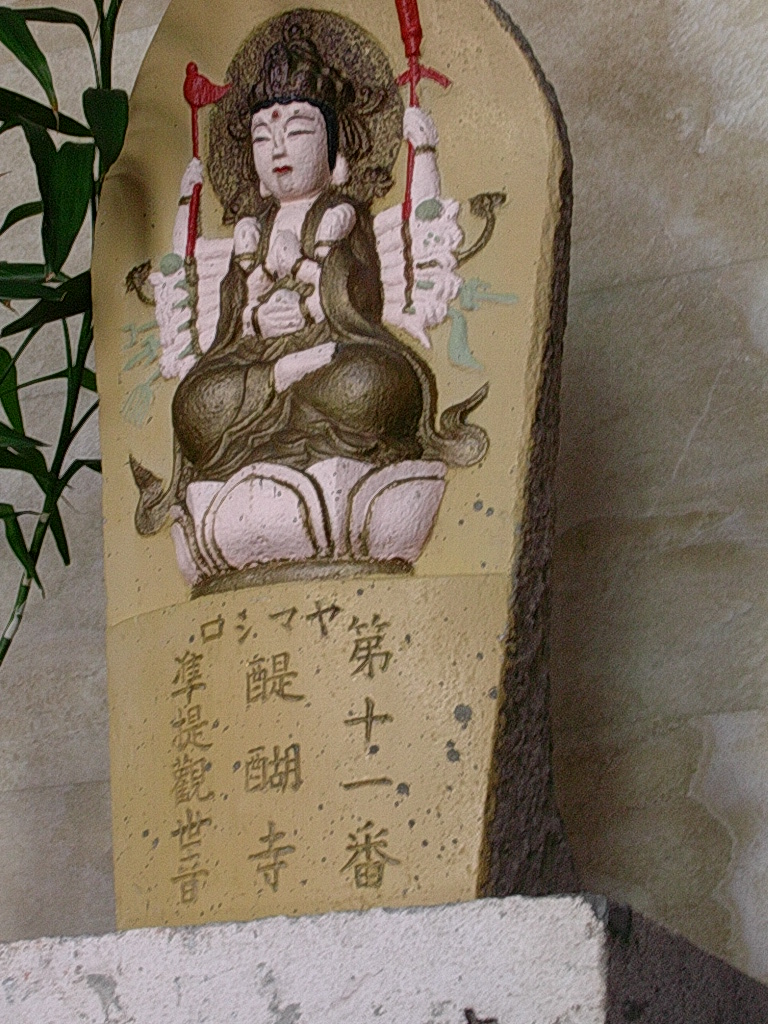 第十一番
ヤマシロ
醍醐寺
準提觀世音